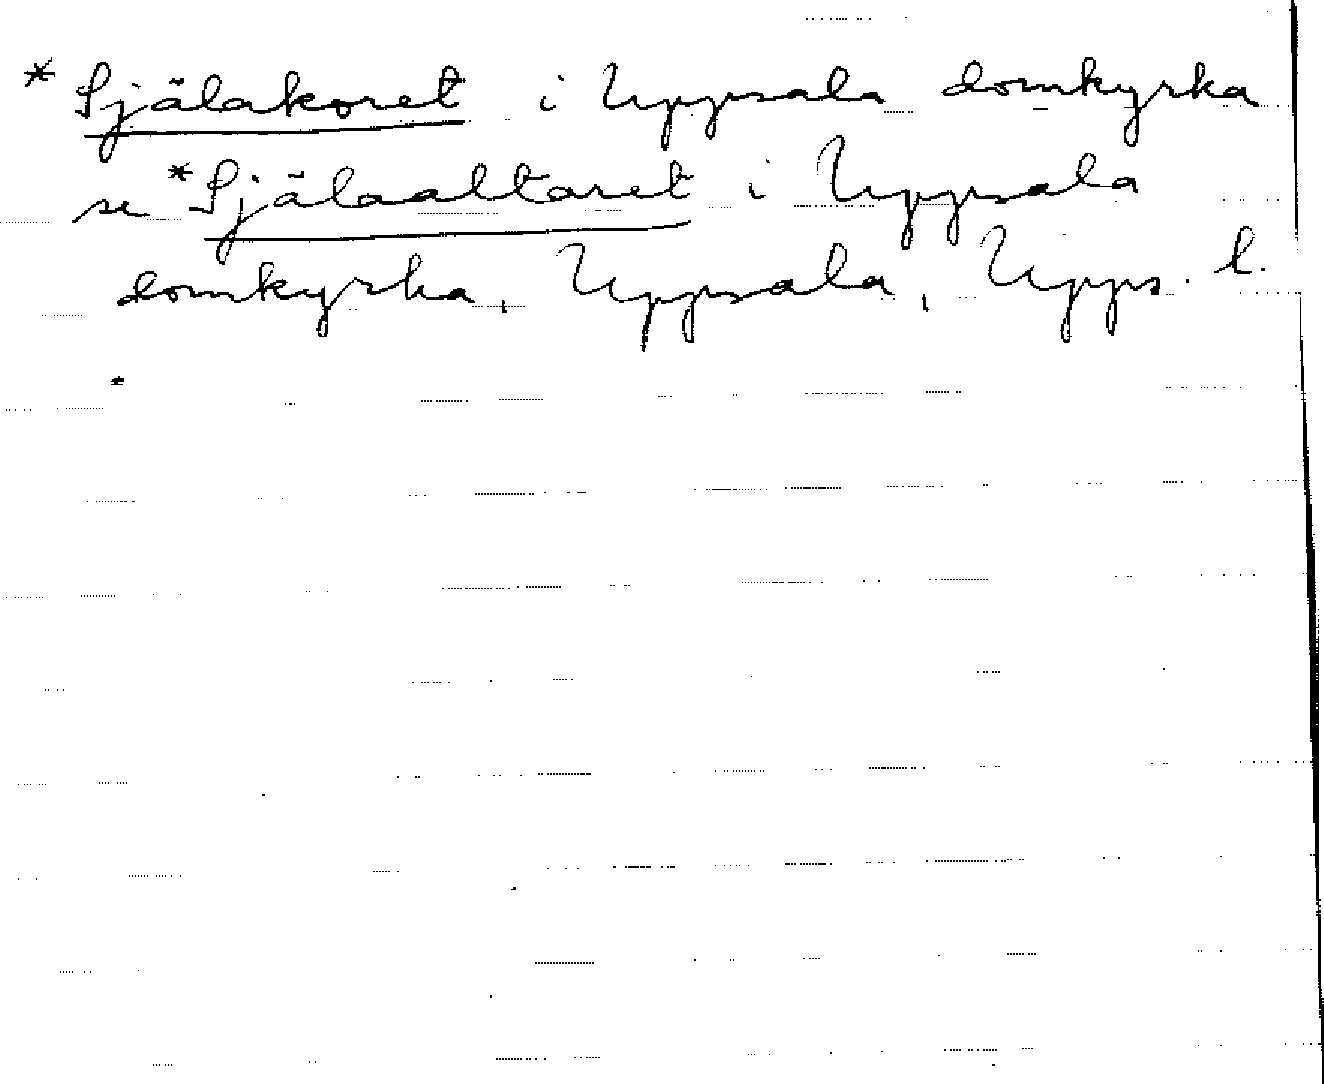 * Själakoret i Uppsala domkyrka
se *Själaaltaret i Uppsala
domkyrka, Uppsala, Upps. l.